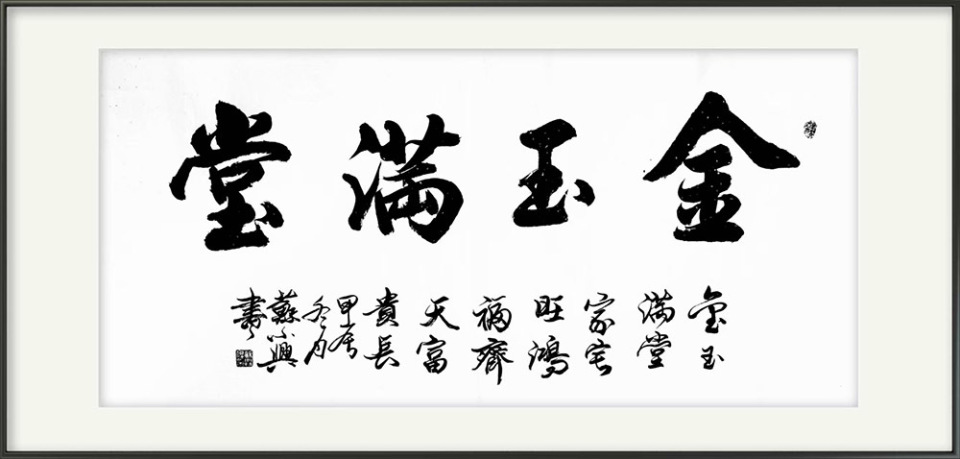 金玉滿堂
金玉
滿堂
家宅
旺鴻
福齊
天富
貴長
甲辰
冬月
蘇小興
書